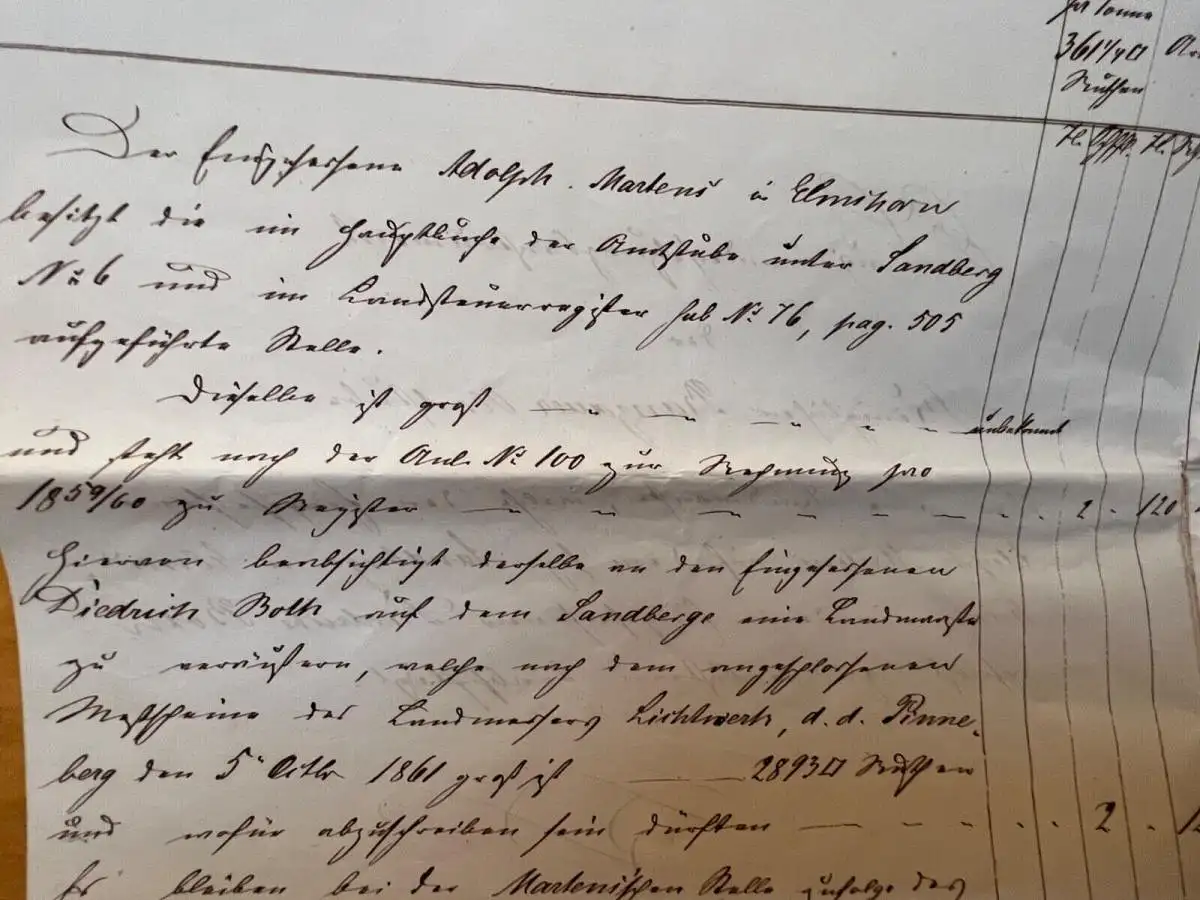 pr Tonne
361 1/4 □
Ruthen
Der Eingesessene Adolph Martens in Elmshorn
besitzt die im Hauptbuche der Amtstube unter Sandberg
No 6 und im Landsteuerregister sub No 76, pag. 505
aufgeführte Stelle.
Dieselbe ist groß — " — " — " " " unbekannt
und steht nach der Anl. No 100 zur Rechnung pro
1859/60 zu Register — " — " — " — " — " — 2 " 120
Hiervon beabsichtigt derselbe an den Eingesessenen
Diedrich Both auf dem Sandberge eine Landmaaße
zu veräußern, welche nach dem angeschlossenen
Meßscheine des Landmessers Lichtwerk, d. d. Pinne-
berg den 5ⁿ Octbr 1861 groß ist — 2893 □ Ruthen
und wofür abzuschreiben sein dürften — " — " — 2 "
Es bleiben bei der Martens'schen Stelle zufolge des